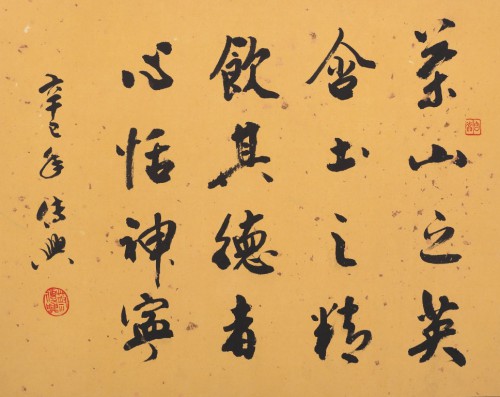 茶山之英
含土之精
飲其德者
心恬神寧
辛巳年傳興